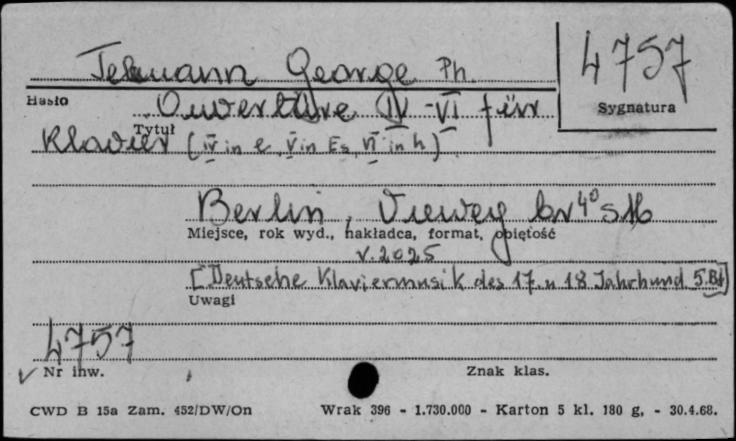 Telemann George Ph.
4757
Hasło
Sygnatura
Ouvertüre IV-VI für
Tytuł
Klavier (IV in e, V in Es, VI in h)
Berlin, Vieweg br 4° s 16
Miejsce, rok wyd., nakładca, format, objętość
V. 2025
[Deutsche Klaviermusik des 17. u 18 Jahrhund 5. Bd]
Uwagi
4757
Nr inw.
Znak klas.
CWD B 15a Zam. 452/DW/On
Wrak 396 - 1.730.000 - Karton 5 kl. 180 g. - 30.4.68.